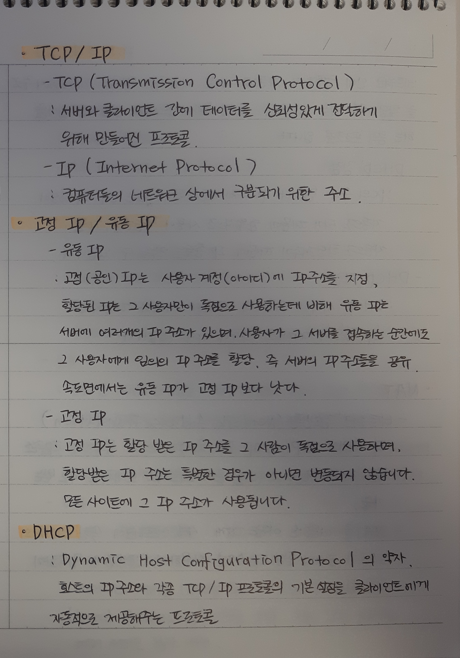 · TCP / IP
- TCP (Transmission Control Protocol)
: 서버와 클라이언트 간에 데이터를 신뢰성있게 전달하기
위해 만들어진 프로토콜.
- IP (Internet Protocol)
: 컴퓨터들의 네트워크 상에서 구분되기 위한 주소.
· 고정 IP / 유동 IP
- 유동 IP
: 고정(공인)IP는 사용자 계정(아이디)에 IP주소를 지정,
할당된 IP는 그 사용자만이 독점으로 사용하는데 비해 유동 IP는
서버에 여러개의 IP 주소가 있으며, 사용자가 그 서버를 접속하는 순간에도
그 사용자에게 임의의 IP 주소를 할당. 즉 서버의 IP 주소들을 공유.
속도면에서는 유동 IP가 고정 IP보다 낫다.
- 고정 IP
: 고정 IP는 할당 받은 IP 주소를 그 사람이 독점으로 사용하며,
할당받은 IP 주소는 특별한 경우가 아니면 변동되지 않습니다.
모든 사이트에 그 IP 주소가 사용됩니다.
· DHCP
: Dynamic Host Configuration Protocol 의 약자.
호스트의 IP주소와 각종 TCP / IP 프로토콜의 기본 설정을 클라이언트에게
자동적으로 제공해주는 프로토콜